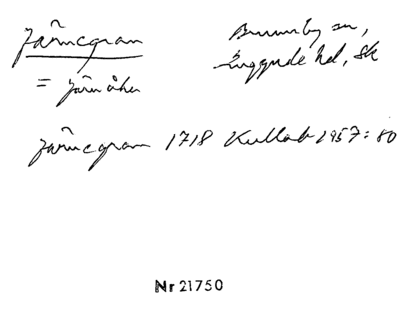 Järnegran
Brunnby sn,
= Järnåker
Luggude hd, Sk
Järnegran 1718 Kullab 1957:80
Nr 21750